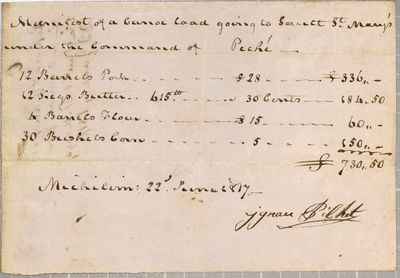 Manifest of a Canoe load going to Sault St. Mary's
under the Command of Peché
12 Barrels Pork $28 $ 336,, -
12 Kegs Butter 615 lb " 30 Cents 184.50
4 Barrels Flour $15 60,, -
30 Bushels Corn 5 150,, -
$ 730,50
Michilim: 22d June 1817
Ignace Pilhet